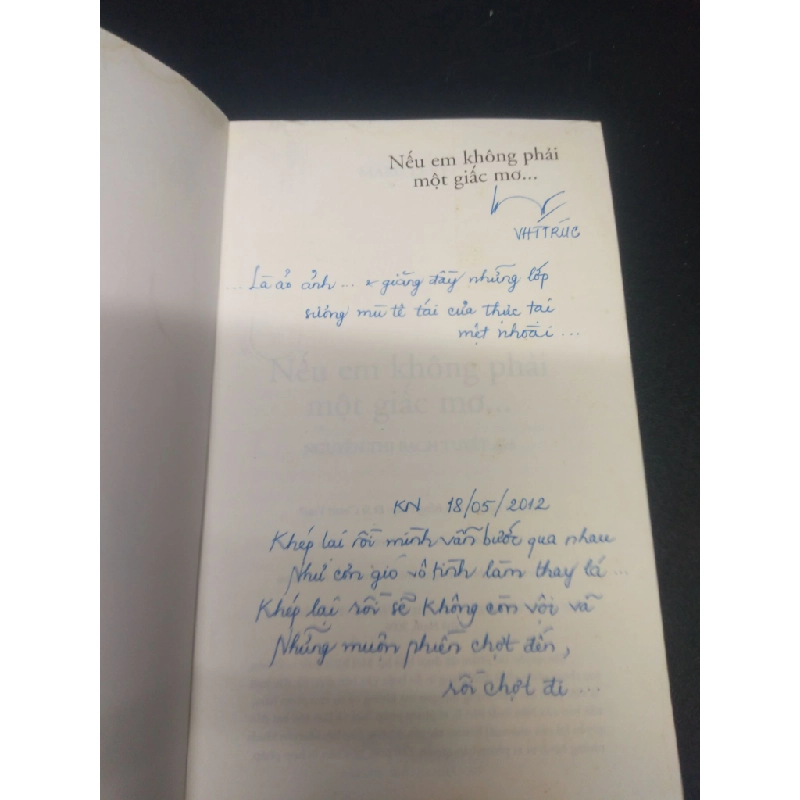 Nếu em không phải
một giấc mơ...
VHTTRÚC
... Là ảo ảnh ... & giăng đầy những lớp
sương mù tê tái của thực tại
mệt nhoài ...
Nếu em không phải
một giấc mơ...
KN 18/05/2012
Khép lại rồi mình vẫn bước qua nhau
Như cơn gió vô tình làm thay lá ...
Khép lại rồi sẽ không còn vội vã
Những muộn phiền chợt đến,
rồi chợt đi ...